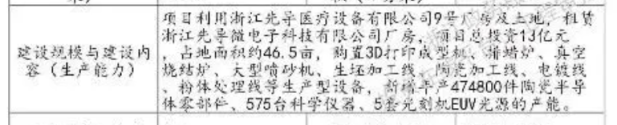 建设规模与建设内
容（生产能力）
项目利用浙江先导医疗设备有限公司9号厂房及土地，租赁
浙江先导微电子科技有限公司厂房，项目总投资13亿元
，占地面积约46.5亩，购置3D打印成型机、排蜡炉、真空
烧结炉、大型喷砂机、生坯加工线、陶瓷加工线、电镀线
、粉体处理线等生产型设备，新增年产474800件陶瓷半导
体零部件、575台科学仪器、5套光刻机EUV光源的产能。